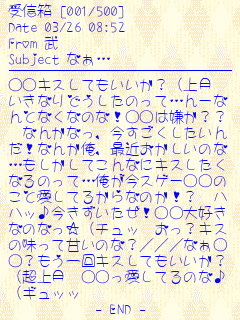 受信箱 [001/500]
Date 03/26 08:52
From 武
Subject なぁ…
○○キスしてもいいか？（上目
いきなりどうしたのって…んーな
んとなくなのな！○○は嫌か？？
　なんかなっ、今すごくしたいん
だ！なんか俺、最近おかしいのな
…もしかしてこんなにキスしたく
なるのって…俺が今スゲー○○の
こと愛してるからなのか！？　ハ
ハッ♪今きずいたぜ！○○大好き
なのなっ☆（チュッ　おっ？キス
の味って甘いのな？///なぁ○
○？もう一回キスしてもいいか？
（超上目　○○っ愛してるのな♪
（ギュッッ
- END -